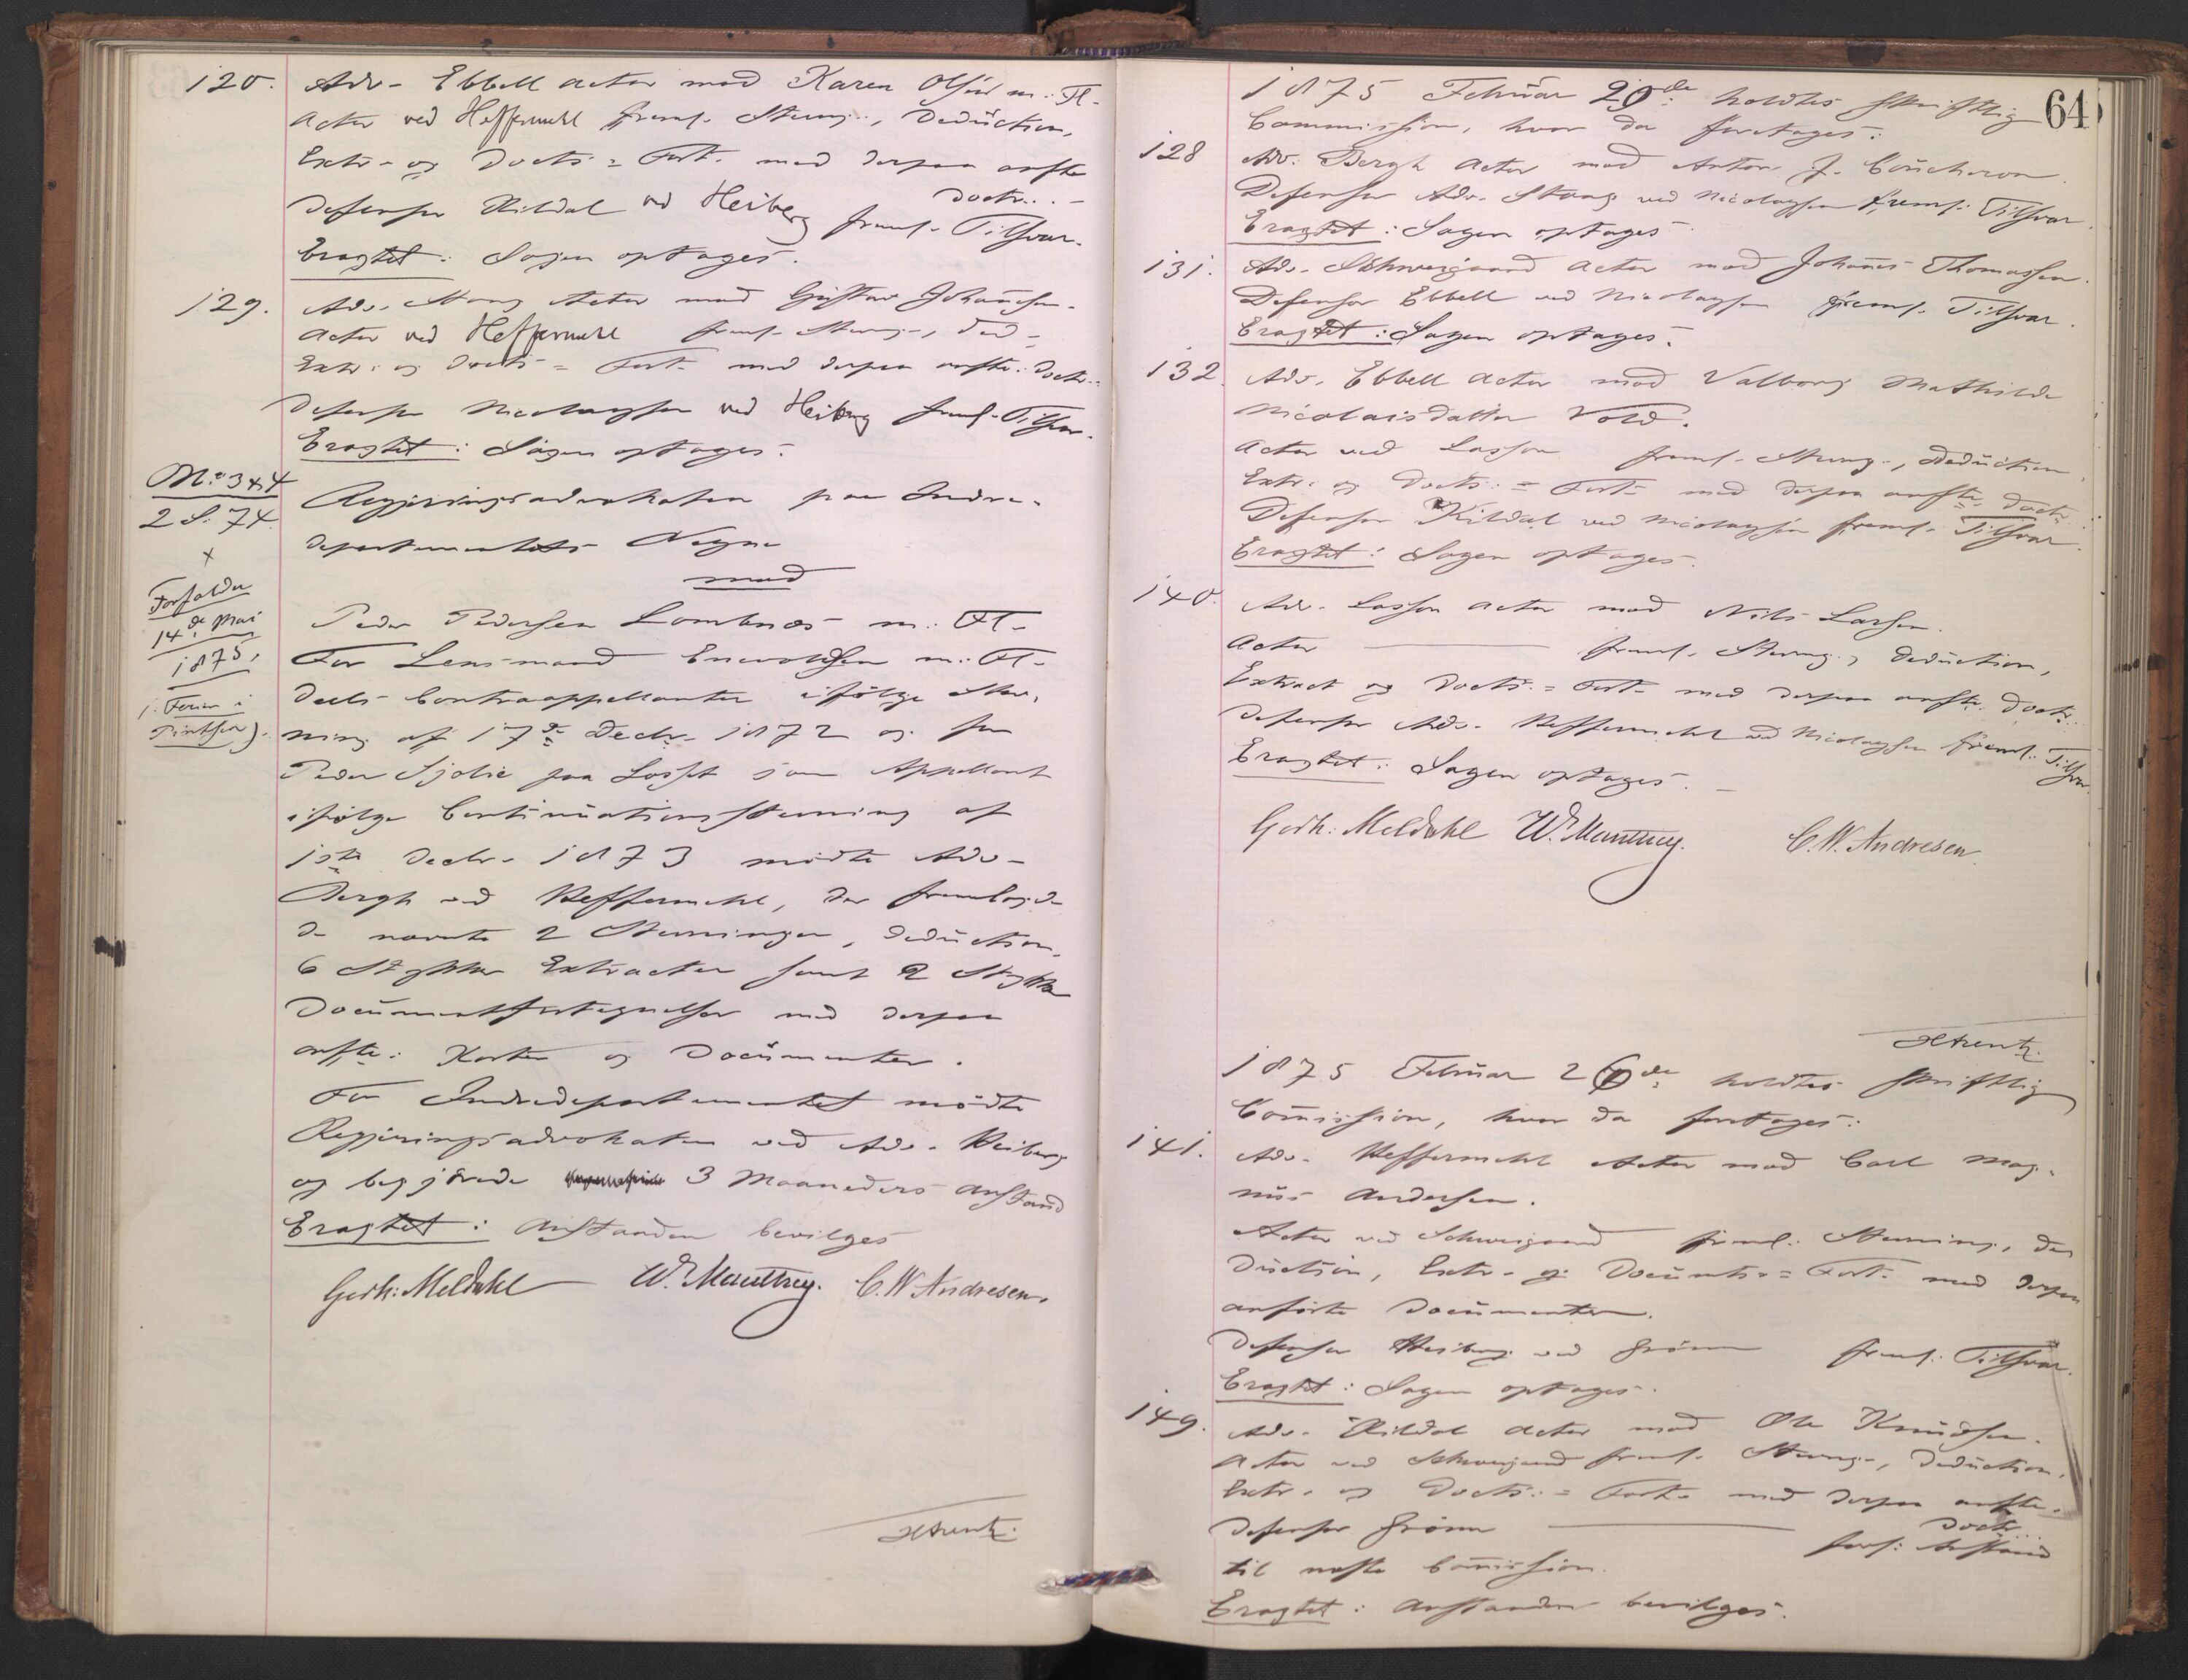 120. Adv. Ebbell Actor mod Karen Olsen m: Fl.
Actor ved Heffermehl freml. Stevng., Deduction,
Extr. og Docts. = Fort. med derpaa anfte
Doctr.
Defensor Kildal ved Heiberg freml. Tilsvar.
Eragtet: Sagen optages.
129. Adv. Stang Actor mod Gustav Johansen.
Actor ved Heffermehl freml. Stevng., Ded.,
Extr. og Docts = Fort. med derpaa anfte. Doctr.
Defensor Nicolaysen ved Heiberg freml. Tilsvar.
Eragtet: Sagen optages.
No. 3 & 4
2 S. 74.
+
Forfalder
14de Mai
1875,
(: Ferien i
Pintsen).
Regjeringsadvokaten paa Indre-
departementets Vegne
mod
Peder Pedersen Lombnæs m: Fl.
For Lensmand Enevoldsen m: Fl.
dels Contraappellanter ifølge Stev-
ning af 17de Decbr. 1872 og for
Peder Sjolie paa Losset som Appellant
ifølge Continuationsstevning af
15te Decbr. 1873 mødte Adv.
Bergh ved Heffermehl, der fremlagde
de nævnte 2 Stevninger, Deduction,
6 Stykker Extracter samt 2 Stykker
Documentfortegnelser med derpaa
anfte. Karter og Documenter.
For Indredepartementet mødte
Regjeringsadvokaten ved Adv. Heiberg
og begjærede 3 Maaneders Anstand
Eragtet: Anstanden bevilges
Gerh: Meldahl W. Manthey. C. W. Andresen.
64
1875 Februar 20de holdtes skriftlig
Commission, hvor da foretages:
128 Adv. Bergh Actor mod Anton J. Coucheron.
Defensor Adv. Stang ved Nicolaysen freml. Tilsvar.
Eragtet: Sagen optages
131. Adv. Schweigaard Actor mod Johannes Thomassen.
Defensor Ebbell ved Nicolaysen freml. Tilsvar.
Eragtet: Sagen optages.
132. Adv. Ebbell Actor mod Valborg Mathilde
Nicolaisdatter Vold.
Actor ved Lasson freml. Stevng., Deduction
Extr. og Docts. = Fort. med derpaa anfte. Doctr
Defensor Kildal ved Nicolaysen freml. Tilsvar.
Eragtet: Sagen optages.
140. Adv. Lasson Actor mod Nils Larsen.
Actor — freml. Stevng., Deduction,
Extract og Docts. = Fort. med derpaa anfte. Doctr.
Defensor Adv. Heffermehl ved Nicolaysen freml. Tilsvar.
Eragtet: Sagen optages.
Gerh: Meldahl W. Manthey. C. W. Andresen.
1875 Februar 26de holdtes skriftlig
Commission, hvor da foretages:
141. Adv. Heffermehl Actor mod Carl Mag-
nus Andersen.
Actor ved Schweigaard freml. Stevning, De-
duction, Extr. og Documts. = Fort. med derpaa
anførte Documenter.
Defensor Heiberg ved Grönn freml. Tilsvar.
Eragtet: Sagen optages.
149. Adv. Kildal Actor mod Ole Knudsen.
Actor ved Schweigaard freml. Stevng., Deduction,
Extr. og Docts. = Fort. med derpaa anfte.
Doctr.
Defensor Grönn — forl. Anstand
til næste Commission.
Eragtet: Anstanden bevilges.